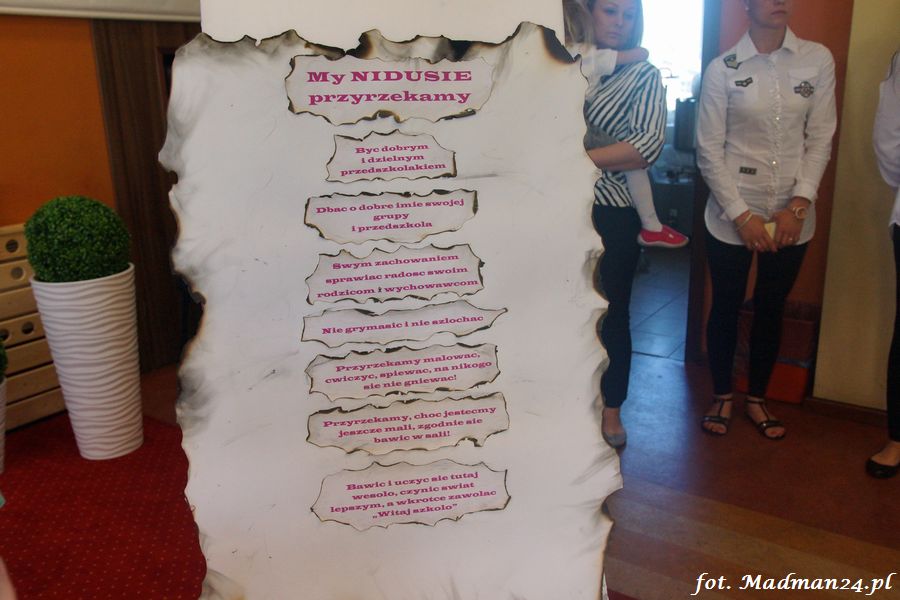 My NIDUSIE
przyrzekamy
Byc dobrym
i dzielnym
przedszkolakiem
Dbac o dobre imie swojej
grupy
i przedszkola
Swym zachowaniem
sprawiac radosc swoim
rodzicom i wychowawcom
Nie grymasic i nie szlochac
Przyrzekamy malowac,
cwiczyc, spiewac, na nikogo
sie nie gniewac!
Przyrzekamy, choc jestecmy
jeszcze mali, zgodnie sie
bawic w sali!
Bawic i uczyc sie tutaj
wesolo, czynic swiat
lepszym, a wkrotce zawolac
„Witaj szkolo”
fot. Madman24.pl